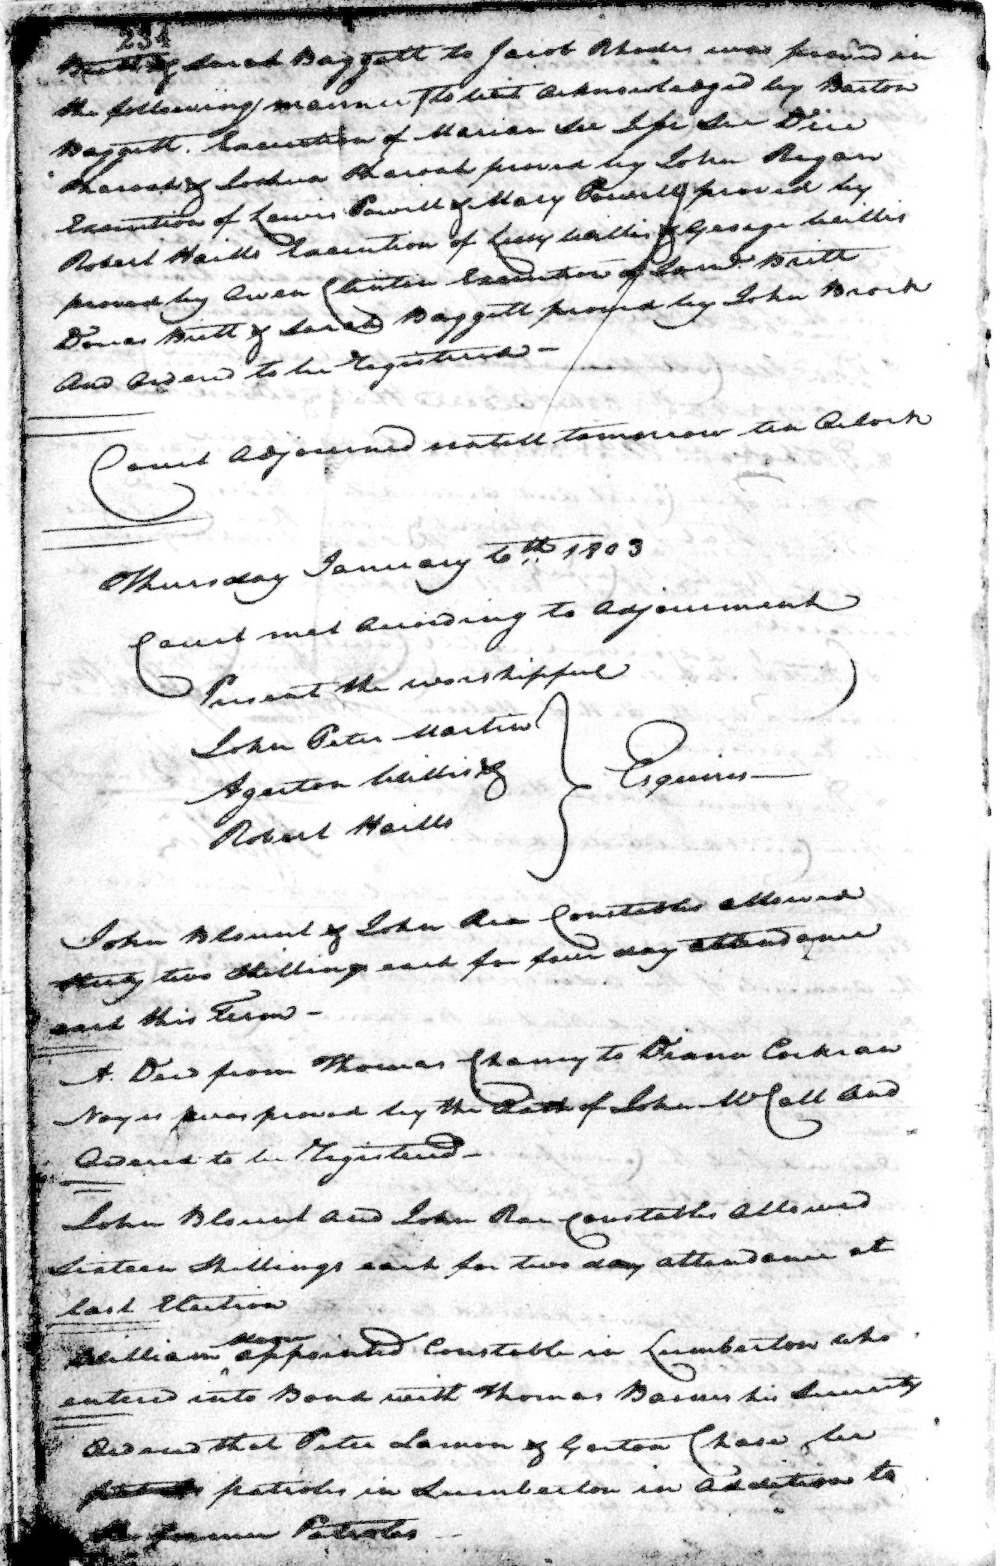 234
Britt & Sarah Baggett to Jacob Rhodes was proved in
the following manner (to wit acknowledged by Barton
Baggett. Execution of Marian Lee Lee Dice
Pharoah & Joshua Pharoah proved by John Regan
Execution of Lewis Powell & Mary Powell proved by
Robert Hails Execution of Willis & George Willis
proved by Owen Clinton Execution of Saml. Britt
Dorcas Britt & Sarah Baggett proved by John Brock
and Ordered to be Registered -
Court Adjourned untill tomorrow ten Oclock
Thursday January 6th 1803
Court met according to adjournment
Present the worshipful
John Peter Martin
Agerton Willis &
Robert Hails
Esquires
John Blount & John Rea Constables allowed
thirty two Shillings each for four day attendance
each this Term -
A. Deed from Thomas Chancy to Diana Cockran
Noyes was proved by the Oath of John McCall and
Ordered to be Registered -
John Blount and John Rae Constables allowed
Sixteen Shillings each for two day attendance at
last Election
William appointed Constable in Lumberton who
entered into Bond with Thomas Barnes his Security
Ordered that Peter Lamon & Gorton Chase be
patroles in Lumberton in addition to
the former Patroles -